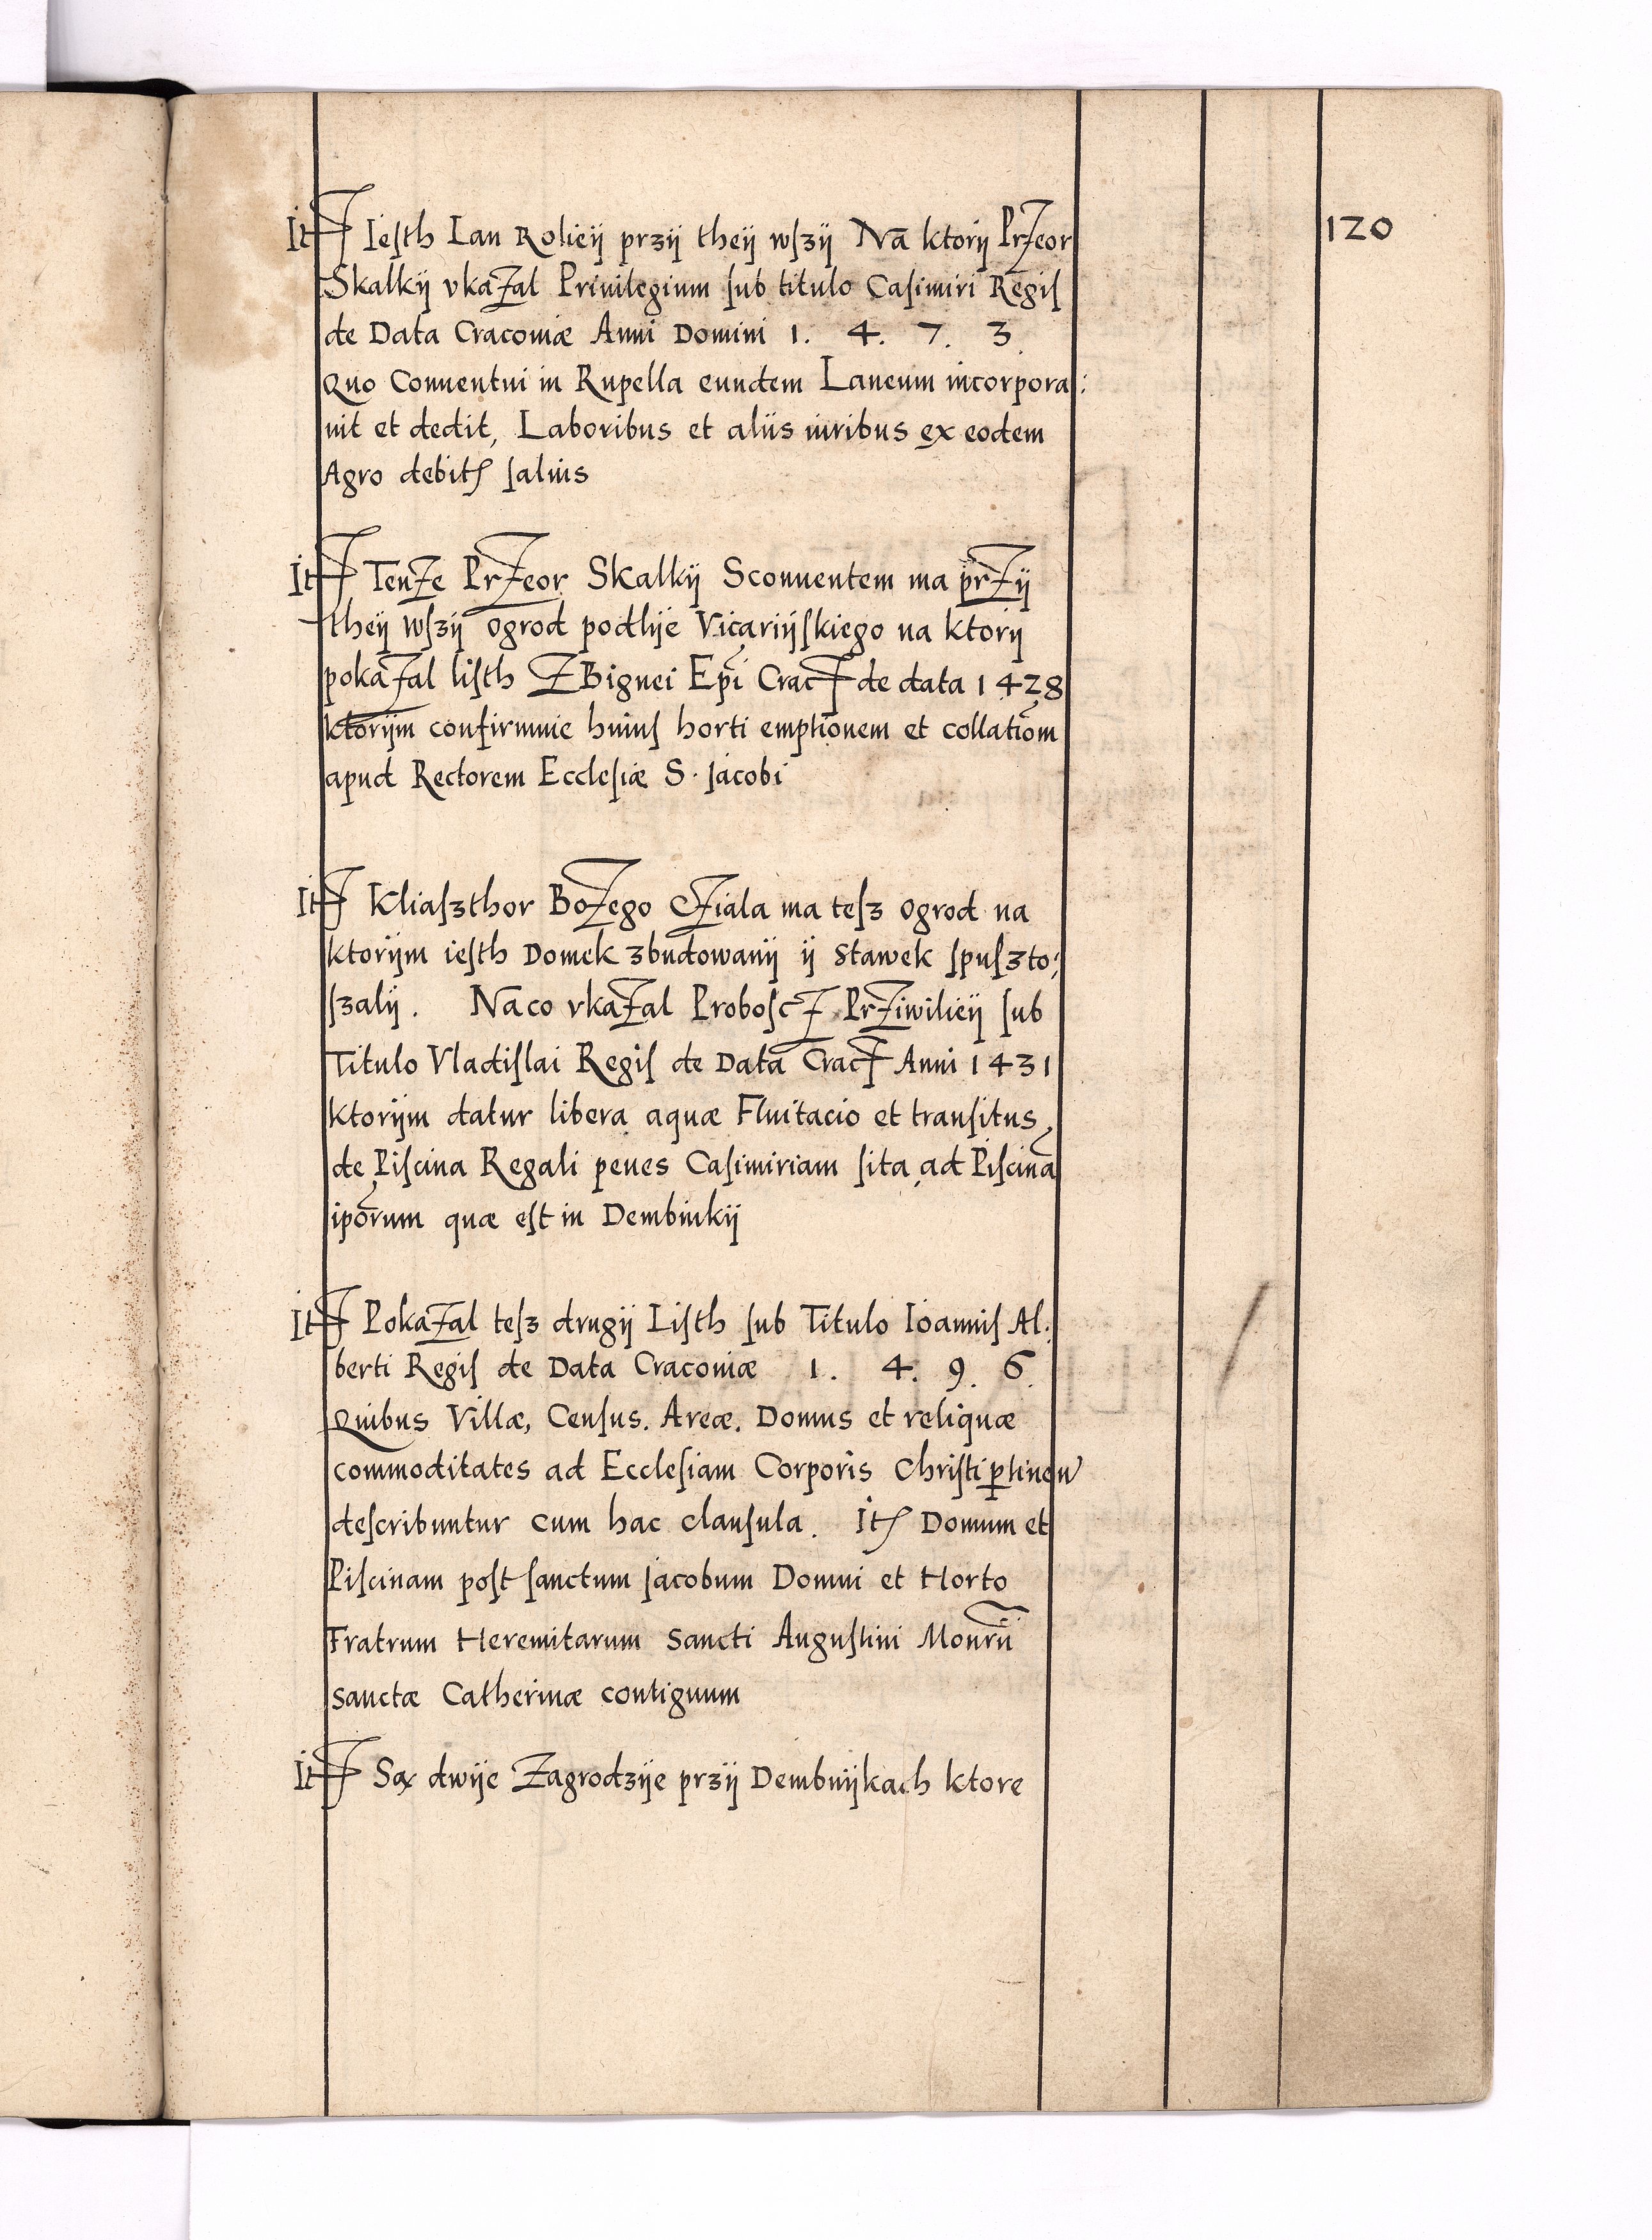 120
It̃ Iesth Lan Rolieÿ przÿ theÿ wszÿ Na ktorÿ PrZeor
Skalkÿ vkaZal Priuilegium sub titulo Casimiri Regis
de Data Cracouiæ Anni Domini 1. 4. 7. 3.
Quo Conuentui in Rupella eundem Laneum incorpora:
uit et dedit, Laboribus et aliis iuribus ex eodem
Agro debitꝭ saluis
It̃ TenZe PrZeor Skalkÿ Sconuentem ma przÿ
theÿ wszÿ ogrod podlÿe Vicariÿskiego na ktorÿ
pokaZal listh ZBignei Ep̃i Crac̃ de data 1428
ktorÿm confirmuie huius horti emptionem et collatiõm
apud Rectorem Ecclesiæ S. Jacobi
It̃ Kliaszthor BoZego CZiala ma tesz ogrod na
ktorÿm iesth Domek zbudowanÿ ÿ Stawek spuszto:
szalÿ. Na co vkaZal ProboscZ PrZiwilieÿ sub
Titulo Vladislai Regis de Data Crac̃ Anni 1431
ktorÿm datur libera aquæ Fluitacio et transitus,
de Piscina Regali penes Casimiriam sita, ad Piscinã
ip̃orum quæ est in Dembinkÿ
It̃ PokaZal tesz drugÿ Listh sub Titulo Ioannis Al:
berti Regis de Data Cracouiæ 1. 4. 9. 6.
Quibus Villæ, Census. Areæ. Domus et reliquæ
commoditates ad Ecclesiam Corporis Christi ꝑtinen̄
describuntur cum hac clausula. Itꝭ Domum et
Piscinam post sanctum Jacobum Domui et Horto
Fratrum Heremitarum Sancti Augustini Monr̃ii
sanctæ Catherinæ contiguum
It̃ Są dwÿe Zagrodzÿe przÿ Dembnÿkach ktore